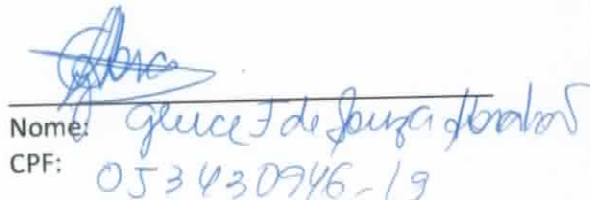 Nome: Gleice F de Souza Abrahão
CPF: 053430946-19